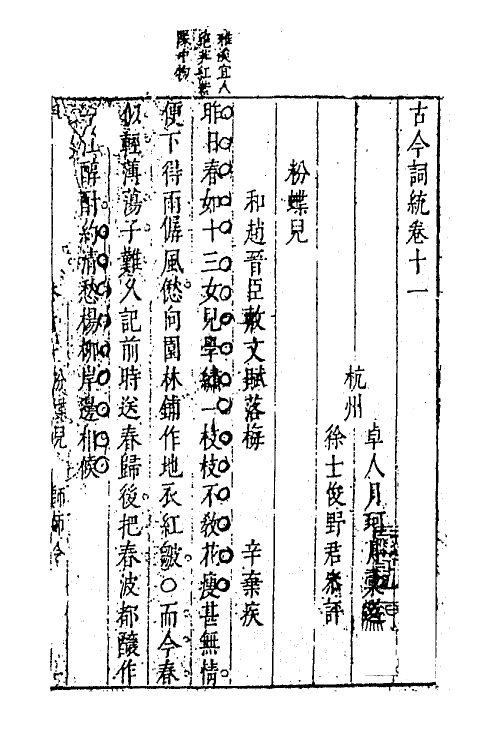 古今詞統卷十一
杭州
卓人月珂月彙
徐士俊野君參評
粉蝶兒
和趙晉臣敷文賦落梅 辛棄疾
雅淡宜人
絶非紅紫
隊中物
昨日春如十三女兒學繡一枝枝不教花瘦甚無情
便下得雨僝風僽向園林鋪作地衣紅皺○而今春
似輕薄蕩子難久記前時送春歸後把春波都釀作
一江醇酎約清愁楊柳岸邊相候
粉蝶兒 師師令